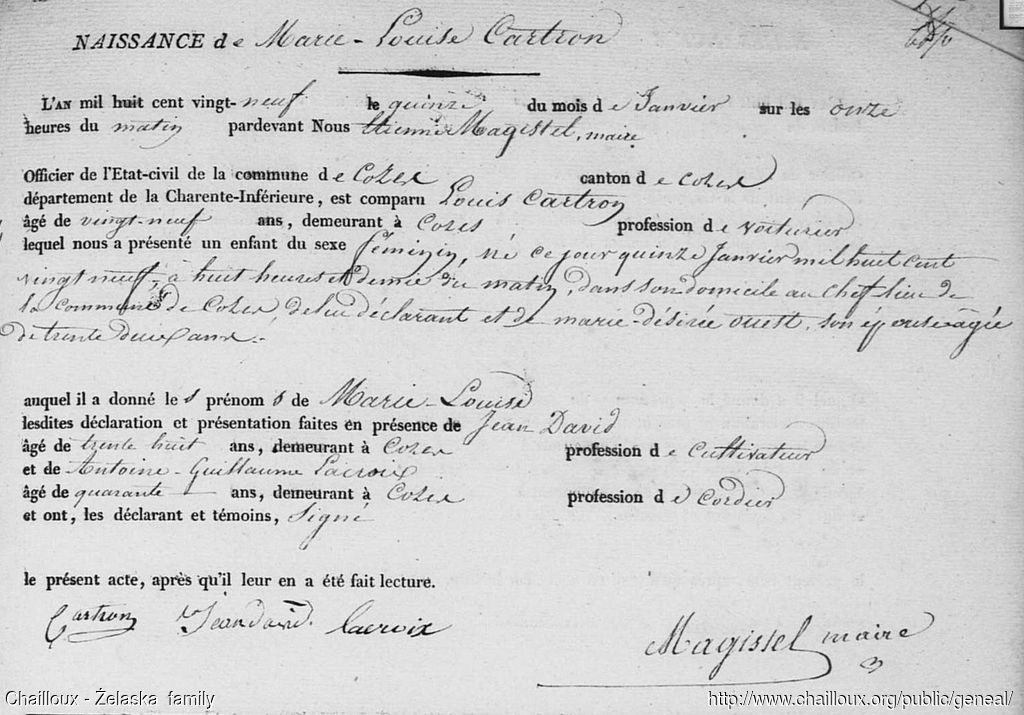 NAISSANCE de Marie-Louise Cartron
L'AN mil huit cent vingt-neuf le quinze du mois de Janvier sur les onze
heures du matin pardevant Nous Etienne Magistel, maire
Officier de l'Etat-civil de la commune de Cozes canton de Cozes
département de la Charente-Inférieure, est comparu Louis Cartron
âgé de vingt-neuf ans, demeurant à Cozes profession de voiturier
lequel nous a présenté un enfant du sexe féminin, né ce jour quinze Janvier mil huit cent
vingt neuf, à huit heures et demie du matin, dans son domicile au chef-lieu de
la commune de Cozes, de lui déclarant et de marie-désirée ouest, son épouse âgée
de trente deux ans.
auquel il a donné les prénoms de Marie-Louise
lesdites déclaration et présentation faites en présence de Jean David
âgé de trente huit ans, demeurant à Cozes profession de cultivateur
et de Antoine-Guillaume Lacroix
âgé de quarante ans, demeurant à Cozes profession de cordier
et ont, les déclarant et témoins, signé
le présent acte, après qu'il leur en a été fait lecture.
Cartron Jean david. lacroix
Magistel maire
Chailloux - Żelaska family http://www.chailloux.org/public/geneal/